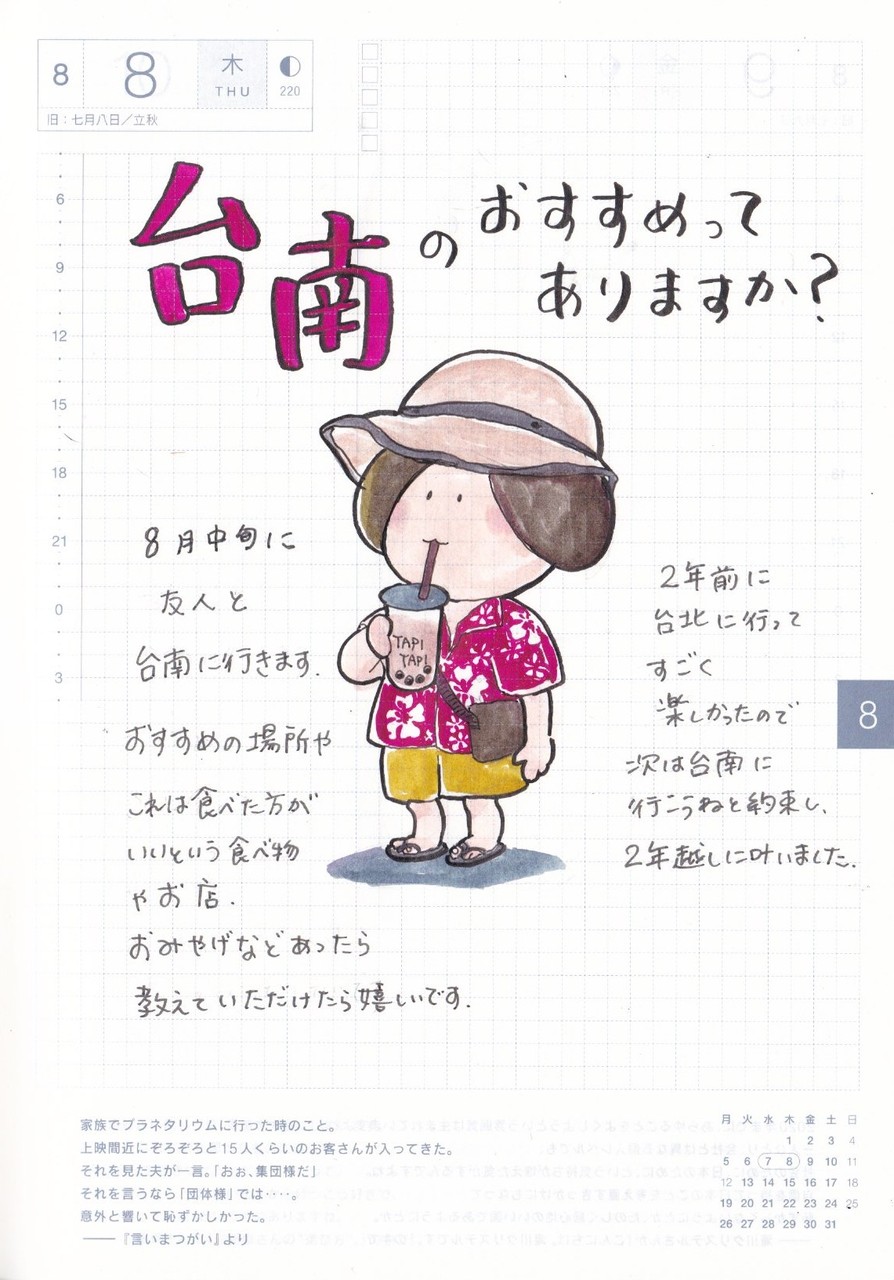 8 8 木 THU 220
旧：七月八日／立秋
台南のおすすめって
ありますか？
6
9
12
15
18
21
0
3
8月中旬に
友人と
台南に行きます.
おすすめの場所や
これは食べた方が
いいという食べ物
やお店.
おみやげなどあったら
教えていただけたら嬉しいです.
TAPI
TAPI
2年前に
台北に行って
すごく
楽しかったので
次は台南に
行こうねと約束し、
2年越しに叶いました.
8
家族でプラネタリウムに行った時のこと。
上映間近にぞろぞろと15人くらいのお客さんが入ってきた。
それを見た夫が一言。「おぉ、集団様だ」
それを言うなら「団体様」では‥‥。
意外と響いて恥ずかしかった。
――『言いまつがい』より
月 火 水 木 金 土 日
1 2 3 4
5 6 7 8 9 10 11
12 13 14 15 16 17 18
19 20 21 22 23 24 25
26 27 28 29 30 31